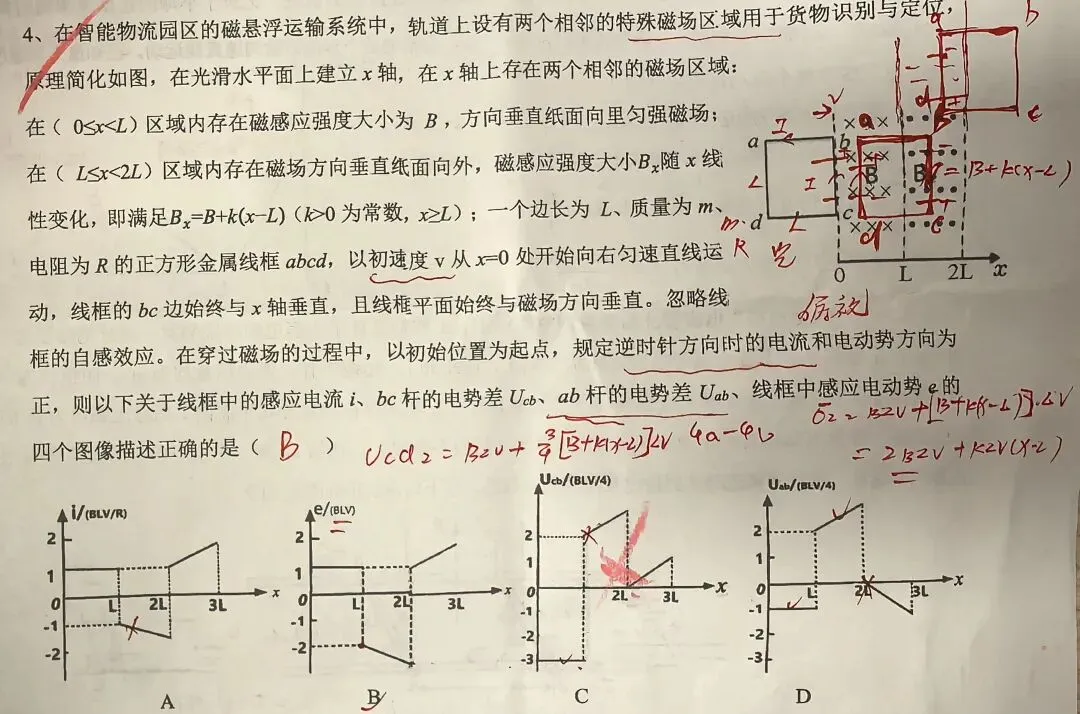 4、在智能物流园区的磁悬浮运输系统中，轨道上设有两个相邻的特殊磁场区域用于货物识别与定位，
原理简化如图，在光滑水平面上建立 x 轴，在 x 轴上存在两个相邻的磁场区域：
在（ 0≤x<L）区域内存在磁感应强度大小为 B，方向垂直纸面向里匀强磁场；
在（ L≤x<2L）区域内存在磁场方向垂直纸面向外，磁感应强度大小Bₓ随 x 线
性变化，即满足Bₓ=B+k(x−L)（k>0 为常数，x≥L）；一个边长为 L、质量为 m、
电阻为 R 的正方形金属线框 abcd，以初速度 v 从 x=0 处开始向右匀速直线运
动，线框的 bc 边始终与 x 轴垂直，且线框平面始终与磁场方向垂直。忽略线
框的自感效应。在穿过磁场的过程中，以初始位置为起点，规定逆时针方向时的电流和电动势方向为
正，则以下关于线框中的感应电流 i、bc 杆的电势差 Ucb、ab 杆的电势差 Uab、线框中感应电动势 e 的
四个图像描述正确的是（ B ）
a b c d
L L I I v
m. R
a b d c
a d c
B B
=B+k(x-L)
0 L 2L x
俯视
Ucd2 = BLV + 3/4[B+k(x-L)]LV φa-φb
E2 = BLV+[B+k(x-L)]·LV
= 2BLV+kLV(x-L)
i/(BLV/R)
2
1
0 L 2L 3L x
-1
-2
A
e/(BLV)
2
1
0 L 2L 3L x
-1
-2
B
Ucb/(BLV/4)
2
1
0 2L 3L x
-1
-2
-3
C
Uab/(BLV/4)
2
1
0 L 2L 3L x
-1
-2
-3
D